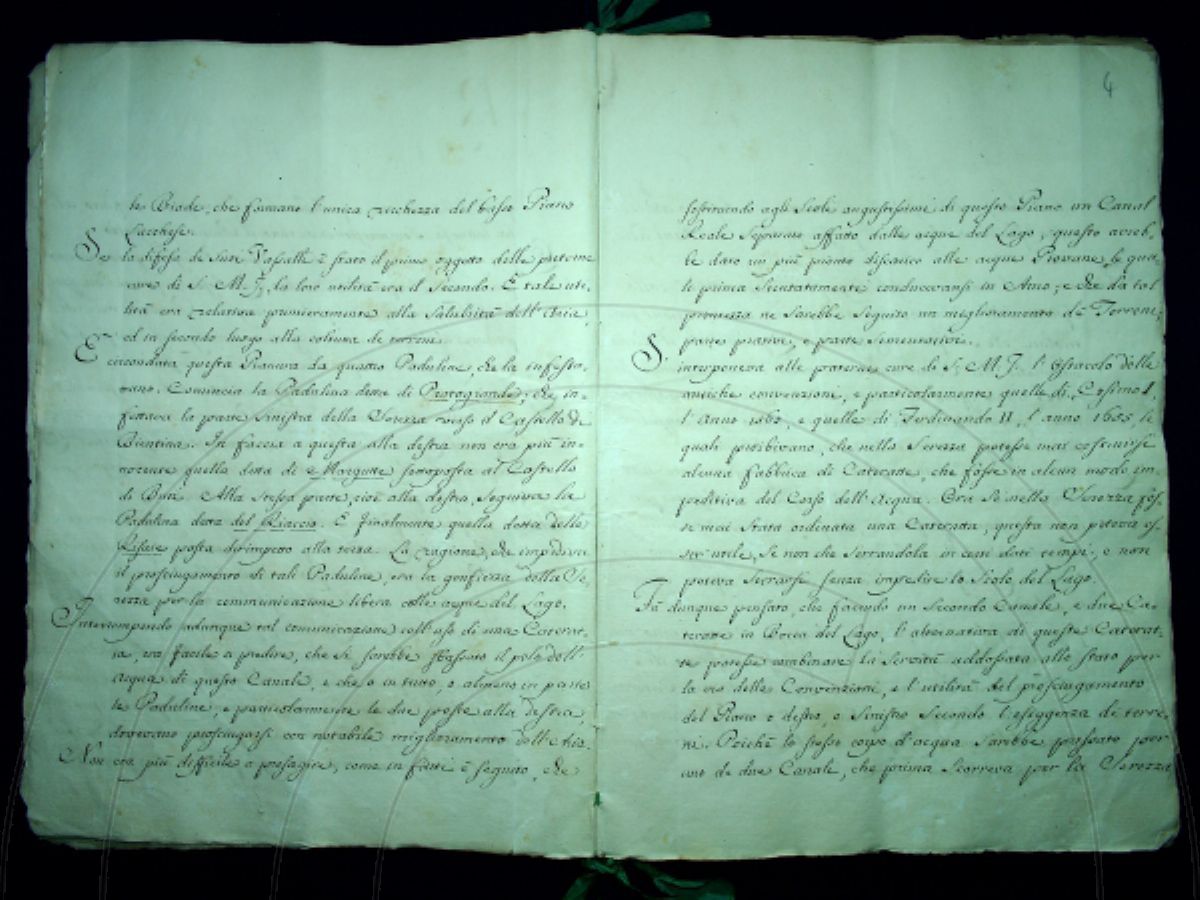 le Biade, che formano l'unica ricchezza del basso Piano
Lucchese.
Se la difesa de suoi Vassalli è stato il primo oggetto delle paterne
cure di S. M. I., la loro utilità era il Secondo. E tale uti-
lità era relativa primieramente alla Salubrità dell'Aria,
ed in secondo luogo alla coltura de terreni.
È circondata questa Pianura da quattro Paduline, che la infesta-
vano. Comincia la Padulina detta di Pratogrande, che in-
fettava la parte sinistra della Serezza verso il Castello di
Bientina. In faccia a questa alla destra non era più in-
nocente quella detta di Margutte sottoposta al Castello
di Buti. Alla stessa parte, cioè alla destra, seguiva la
Padulina detta del Riaccio. E finalmente quella detta delle
posta dirimpetto alla terza. La ragione, che impediva
il prosciugamento di tali Paduline, era la gonfiezza della Se-
rezza per la communicazione libera colle acque del Lago.
Interrompendo adunque tal comunicazione coll'uso di una Caterat-
ta, era facile a predire, che si sarebbe sbassato il pelo dell'
acqua di questo Canale, e che o in tutto, o almeno in parte
le Paduline, e particolarmente le due poste alla destra,
dovevano prosciugarsi con notabile miglioramento dell'Aria.
Non era più difficile a presagire, come in fatti è seguito, che
4
sostituendo agli Scoli angustissimi di questo Piano un Canal
Reale separato affatto dalle acque del Lago, questo avreb-
be dato un più pronto discarico alle acque Piovane, le qua-
li prima stentatamente conducevansi in Arno; e che da tal
prontezza ne sarebbe seguito un miglioramento de Terreni,
parte prativi, e parte sementativi.
Si interponeva alle paterne cure di S. M. I. l'ostacolo delle
antiche convenzioni, e particolarmente quelle di Cosimo I.
l'Anno e quelle di Ferdinando II. l'anno le
quali proibivano, che nella Serezza potesse mai costruirsi
alcuna fabbrica di Cateratte, che fosse in alcun modo im-
peditiva del Corso dell'Acqua. Ora se nella Serezza fos-
se mai stata ordinata una Cateratta, questa non poteva es-
ser utile, se non che serrandola in certi dati tempi, e non
poteva serrarsi senza impedire lo Scolo del Lago.
Fù dunque pensato, che facendo un secondo Canale, e due Ca-
teratte in Bocca del Lago, l'alternativa di queste Caterat-
te potesse combinare la Servitù addossata allo stato per
la via delle Convenzioni, e l'utilità del prosciugamento
del Piano o destro, o Sinistro secondo l'esiggenza de terre-
ni. Poichè lo stesso corpo d'acqua sarebbe passato per
uno de due Canali, che prima scorreva per la Serezza